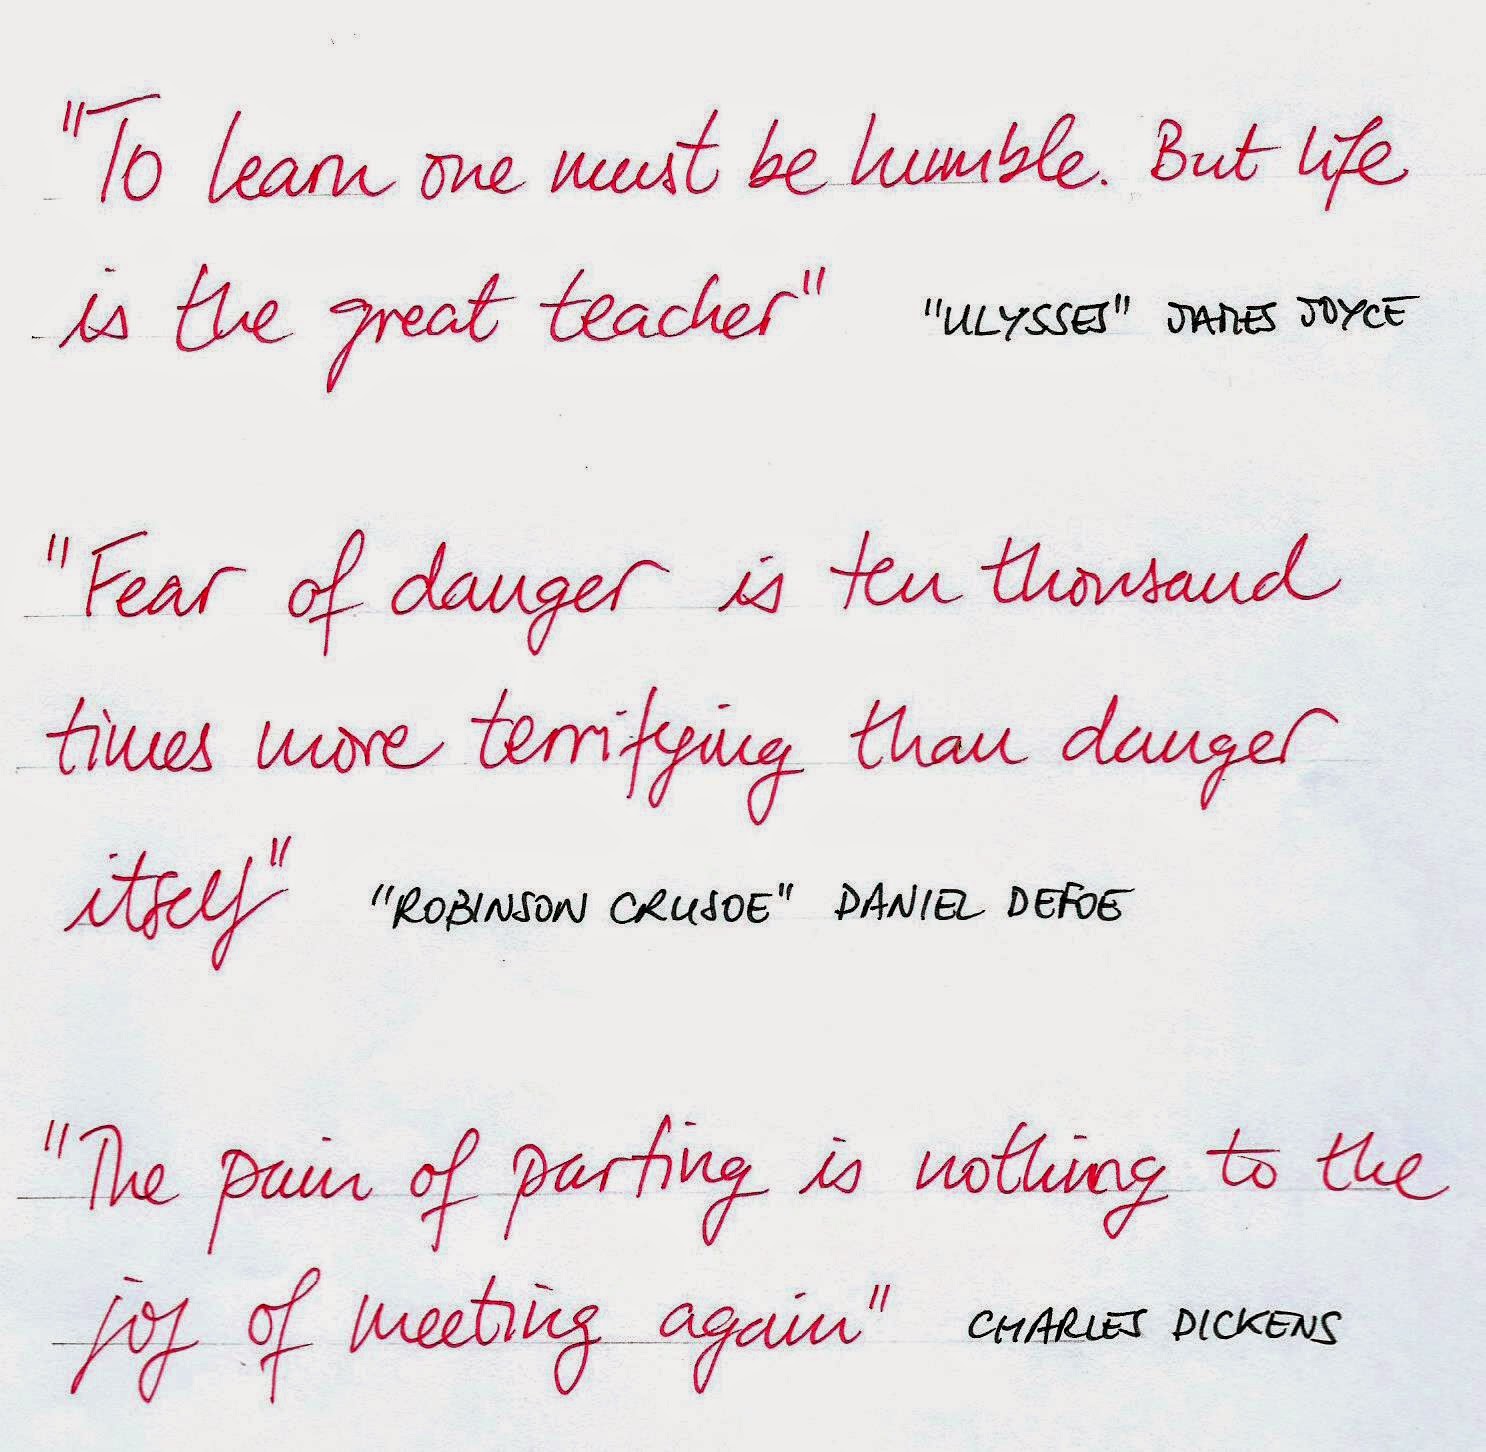 "To learn one must be humble. But life
is the great teacher" "ULYSSES" JAMES JOYCE
"Fear of danger is ten thousand
times more terrifying than danger
itself" "ROBINSON CRUSOE" DANIEL DEFOE
"The pain of parting is nothing to the
joy of meeting again" CHARLES DICKENS